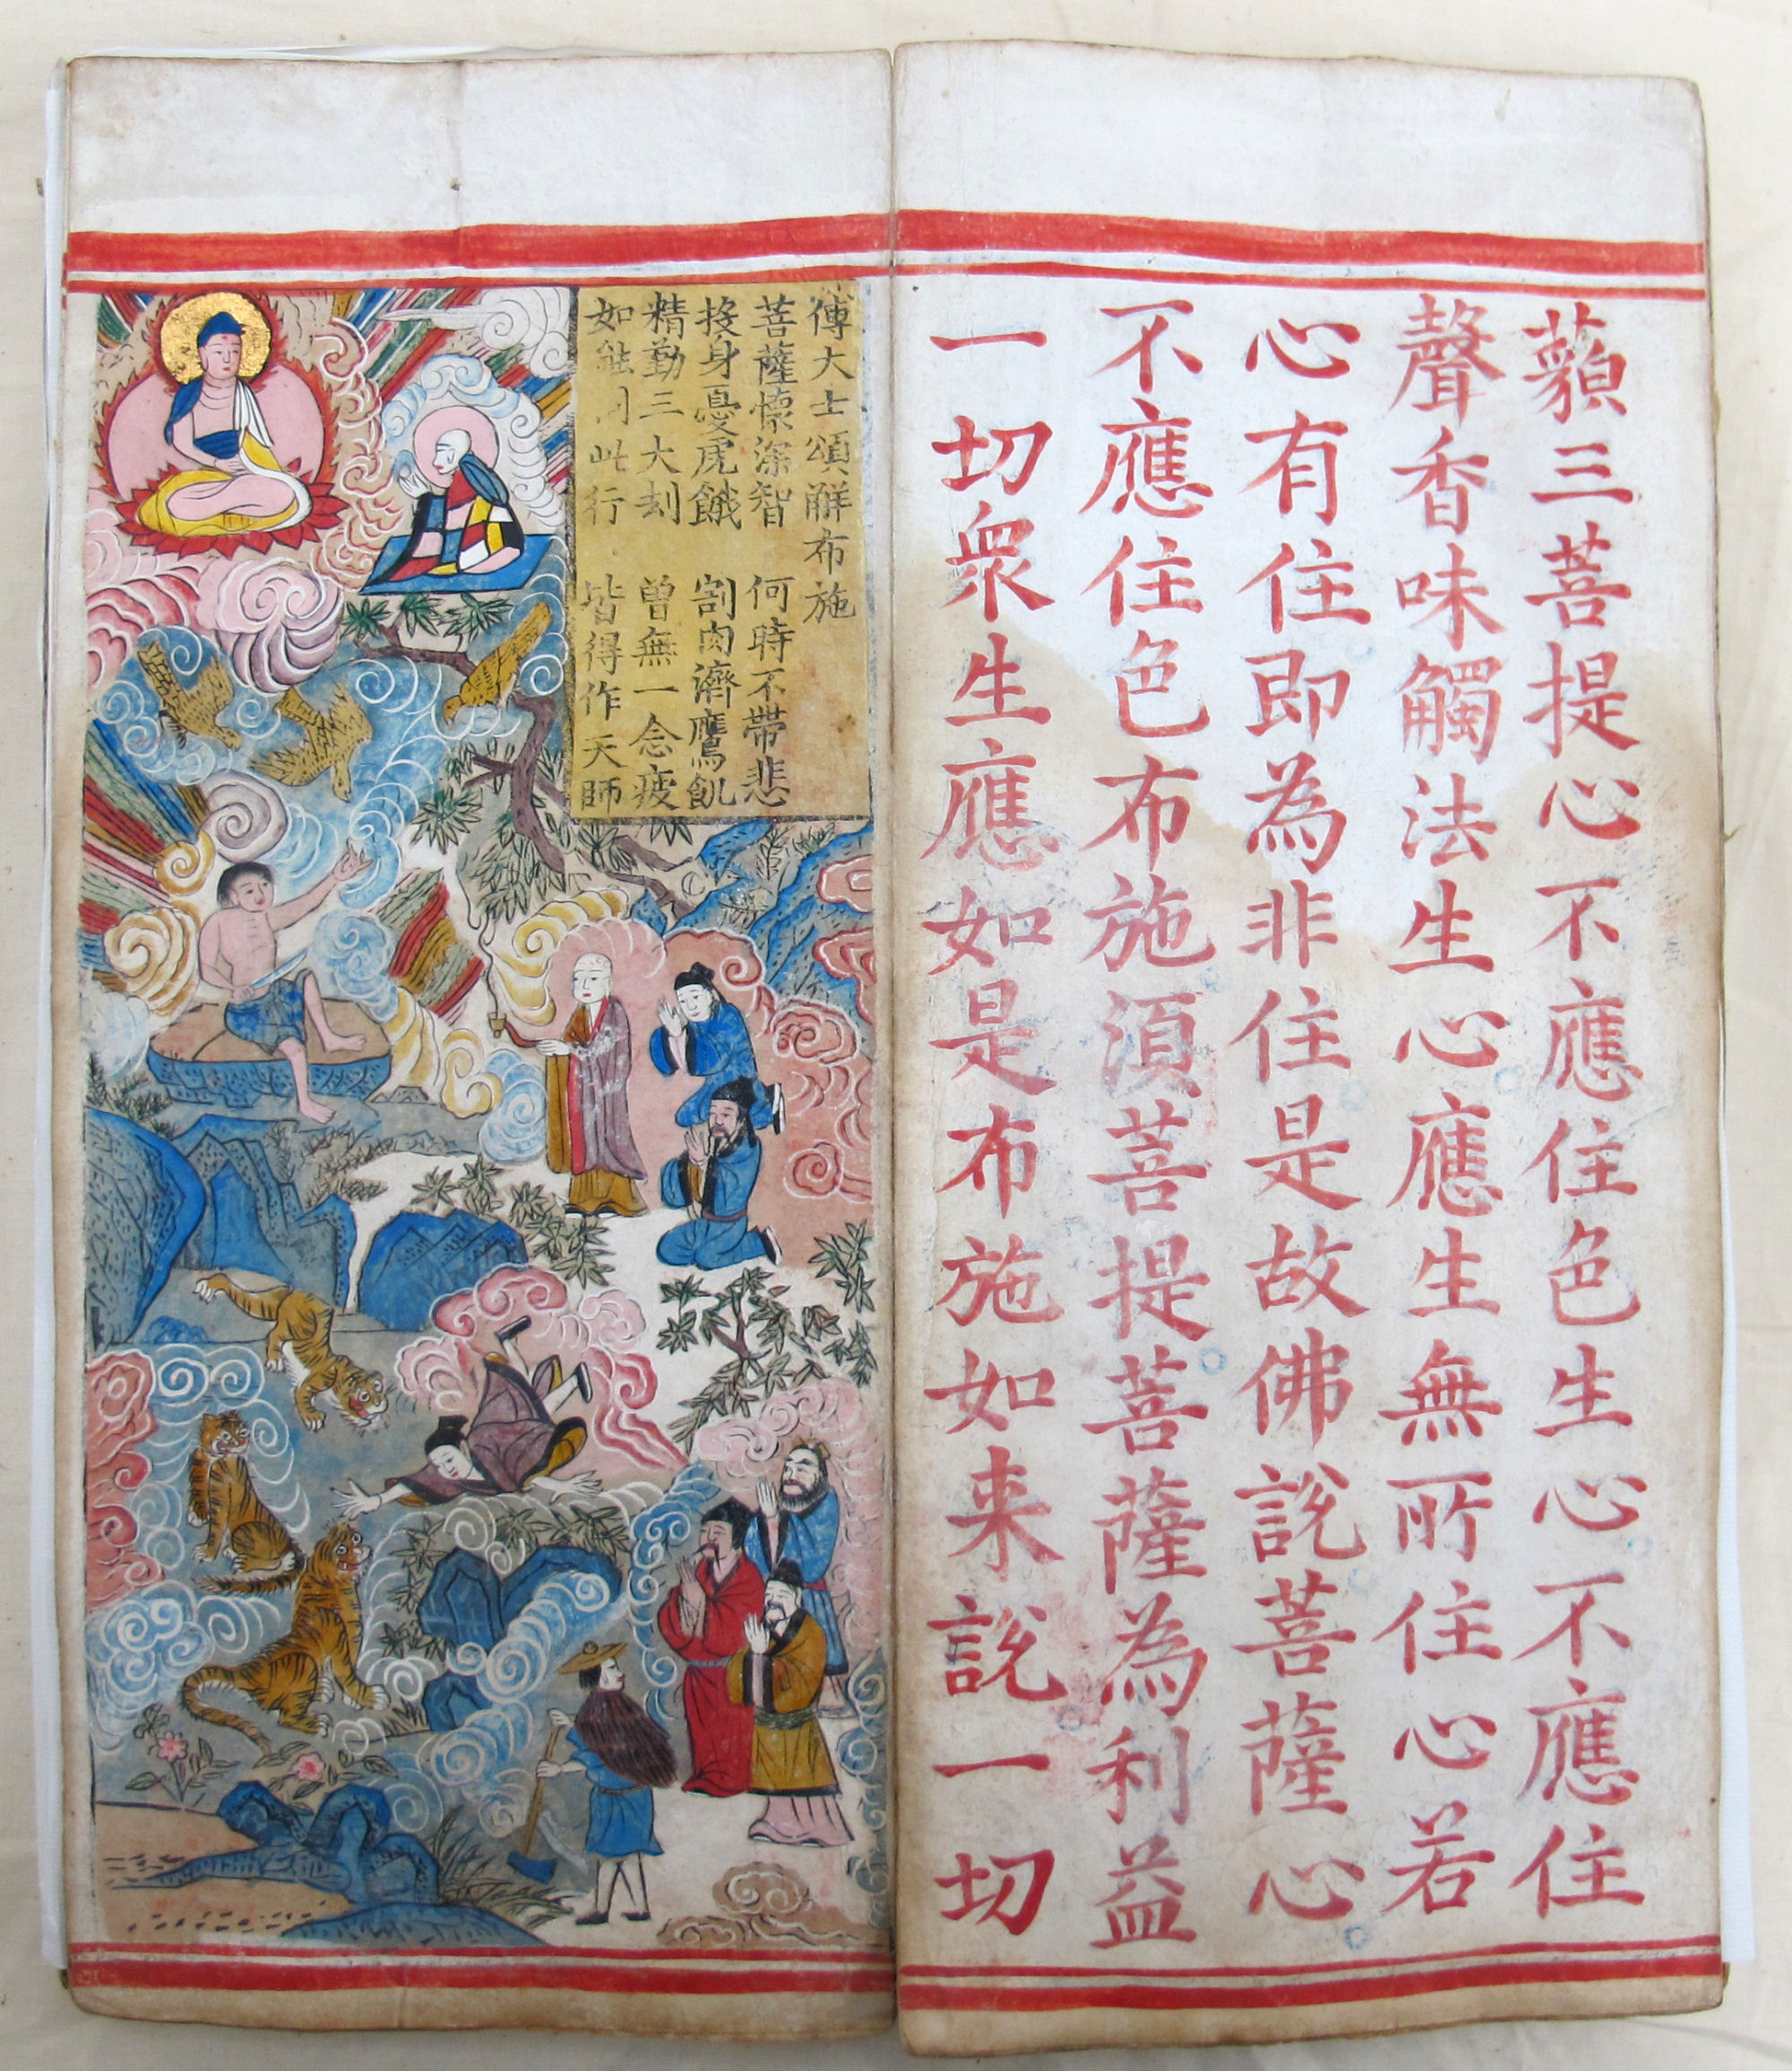 藐三菩提心不應住色生心不應住
聲香味觸法生心應生無所住心若
心有住即為非住是故佛說菩薩心
不應住色布施須菩提菩薩為利益
一切眾生應如是布施如来說一切
傅大士頌觧布施
菩薩懷深智 何時不帶悲
投身憂虎餓 割肉濟鷹飢
精勤三大刦 曾無一念疲
如能同此行 皆得作天師